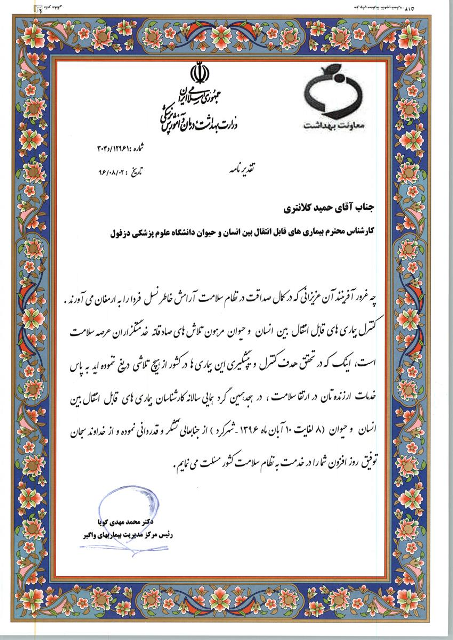 جمهوری اسلامی ایران
وزارت بهداشت، درمان و آموزش پزشکی
معاونت بهداشت
شماره: ۳۰۳د/۱۲۹۶۱
تاریخ: ۹۶/۰۸/۰۲
تقدیر نامه
جناب آقای حمید کلانتری
کارشناس محترم بیماری های قابل انتقال بین انسان و حیوان دانشگاه علوم پزشکی دزفول
چه غرور آفرینند آن عزیزانی که در کمال صداقت در نظام سلامت آرامش خاطر نسل فردا را به ارمغان می آورند .
کنترل بیماری های قابل انتقال بین انسان و حیوان مرهون تلاش های صادقانه خدمتگزاران عرصه سلامت
است، اینک که در تحقق هدف کنترل و پیشگیری این بیماری ها در کشور از هیچ تلاشی دریغ ننموده اید به پاس
خدمات ارزنده تان در ارتقا سلامت ، در هجدهمین گرد همایی سالانه کارشناسان بیماری های قابل انتقال بین
انسان و حیوان (۸ لغایت ۱۰ آبان ماه ۱۳۹۶ - شهرکرد ) از جنابعالی تشکر و قدردانی نموده و از خداوند سبحان
توفیق روز افزون شما را در خدمت به نظام سلامت کشور مسئلت می نمایم.
دکتر محمد مهدی گویا
رئیس مرکز مدیریت بیماریهای واگیر